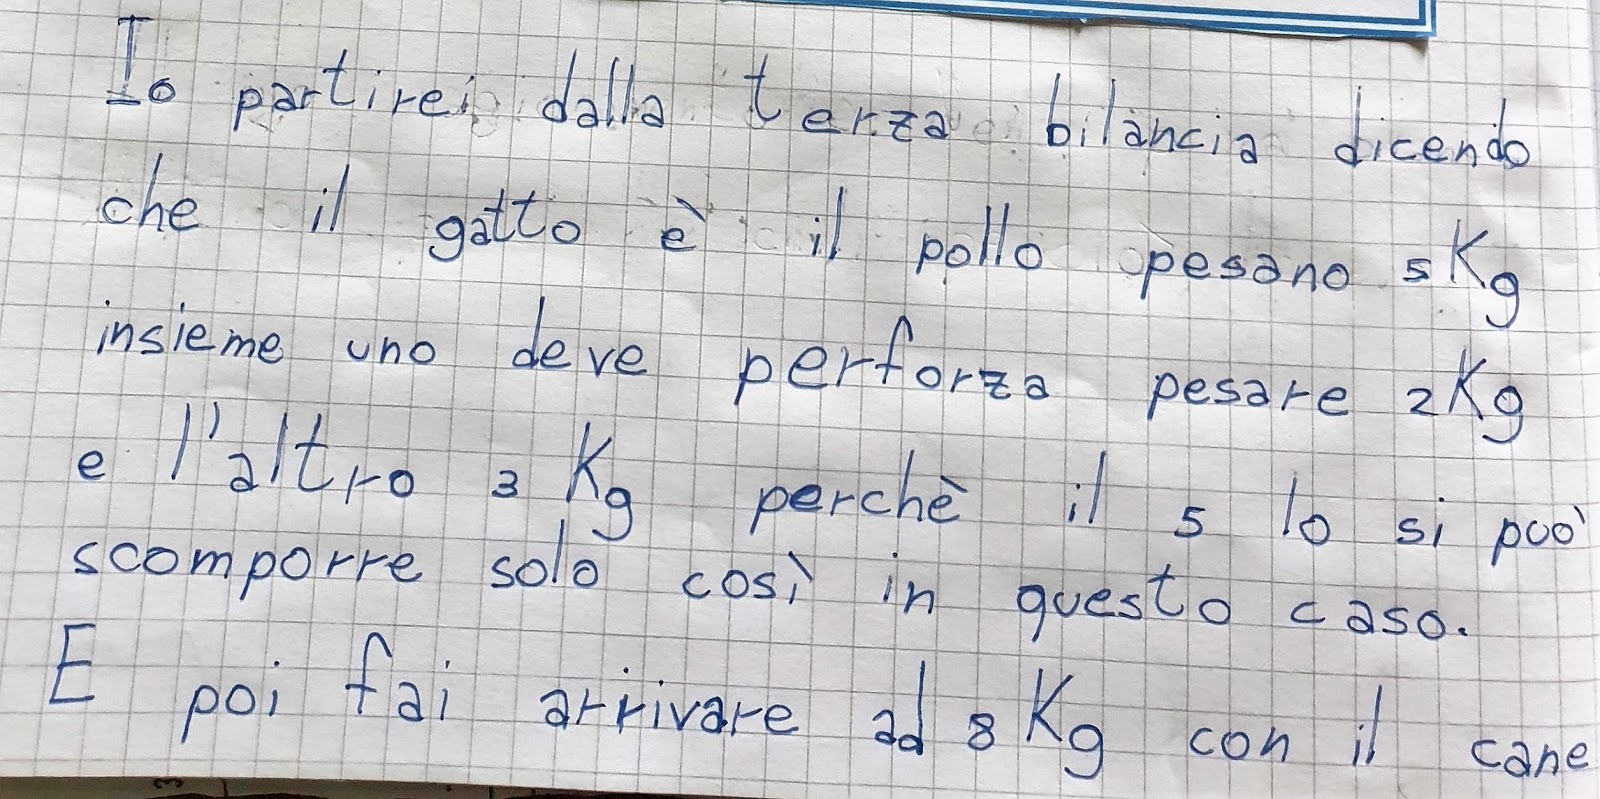 Io partirei dalla terza bilancia dicendo
che il gatto è il pollo pesano 5 Kg
insieme uno deve perforza pesare 2 Kg
e l'altro 3 Kg perchè il 5 lo si può
scomporre solo così in questo caso.
E poi fai arrivare ad 8 Kg con il cane